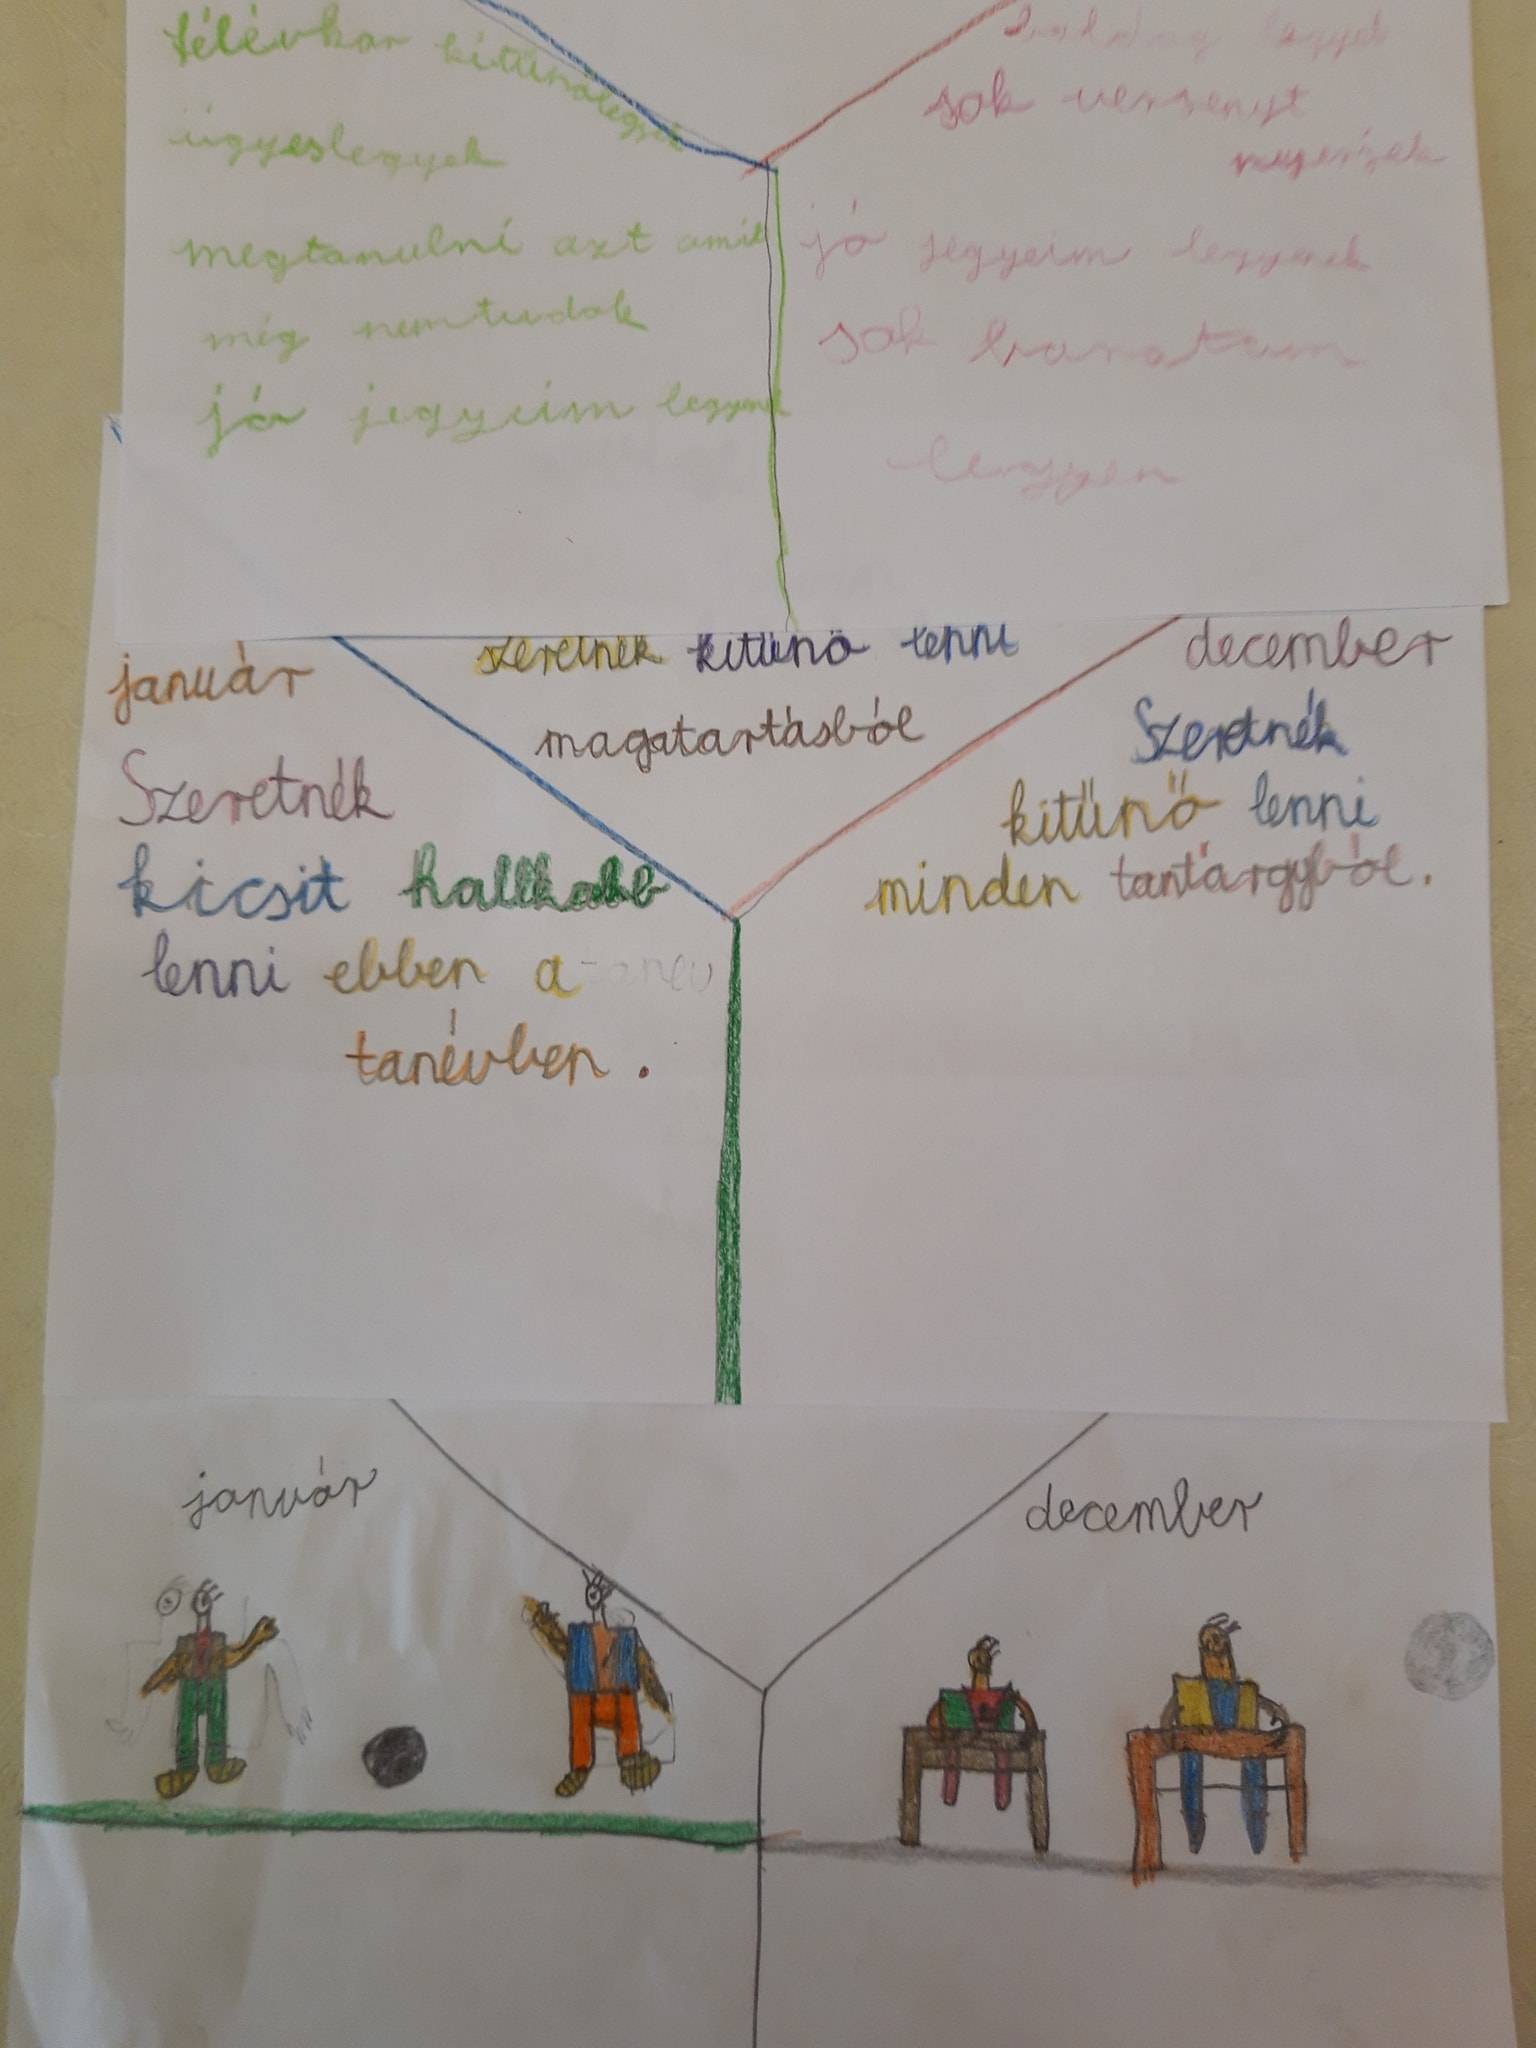 félévkor kitűnő legyek
ügyeslegyek
megtanulni azt amit
még nemtudok
jó jegyeim legyenek
legyek
sok versenyt
jó jegyeim legyenek
sok barátom
legyen
január
Szeretnék
kicsit halkabb
lenni ebben a tanév
tanévben.
szeretnék kitünő lenni
magatartásból
december
Szeretnék
kitünő lenni
minden tantárgyból.
január
december